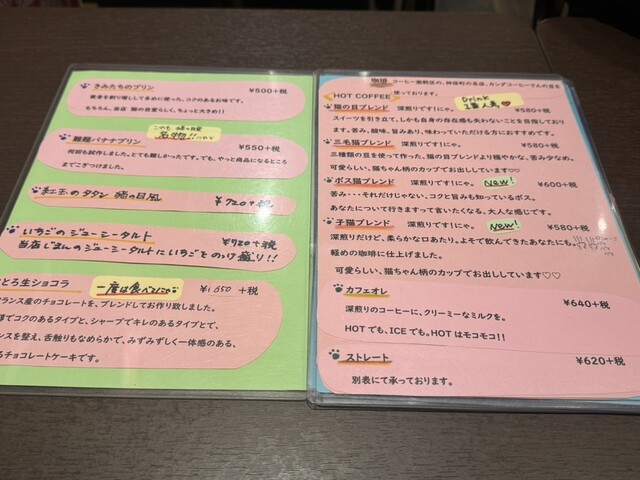 きみたちのプリン ¥500+税
黄身を割り増しして多めに使った、コクのあるお味です。
もちろん、当店 猫の目愛らしく、ちょっと大きめ!!
名物!!
難題バナナプリン ¥550+税
何回も試作しました。とても難しかったです。でも、やっと商品になるところ
までこぎつけました。
紅玉のタタン 猫の目風 ¥720+税
いちごのジューシータルト ¥920+税
当店じまんのジューシータルトにいちごをのっけ盛り!!
とろ生ショコラ 一度は食べてにゃ ¥1,650 +税
ランス産のチョコレートを、ブレンドしてお作り致しました。
でコクのあるタイプと、シャープでキレのあるタイプとで、
ンスを整え、舌触りもなめらかで、みずみずしく一体感のある、
るチョコレートケーキです。
珈琲 コーヒー激戦区の、神保町の名店、カンダコーヒーさんの豆を
使っております。
HOT COFFEE
Drink 1番人気
猫の目ブレンド 深煎りです!にゃ。 ¥580+税
スイーツを引き立て、しかも自身の存在感も失わないことを目指しており
ます。苦み、酸味、旨みあり、味わっていただける方におすすめです。
三毛猫ブレンド 深煎りです!にゃ。 ¥580+税
三種類の豆を使って作った、猫の目ブレンドより穏やかな、苦み少なめ。
可愛らしい、猫ちゃん柄のカップでお出ししています♡
ボス猫ブレンド 深煎りです!にゃ。 New! ¥600+税
苦み・・・それだけじゃない、コクと旨みも知っているボス。
あなたについて行きますって言いたくなる、大人な感じです。
子猫ブレンド 深煎りです!にゃ。 New! ¥580+税
深煎りだけど、柔らかな口あたり。よそで飲んできたあなたにも。
軽めの珈琲に仕上げました。
可愛らしい、猫ちゃん柄のカップでお出ししています♡♡
カフェオレ ¥640+税
深煎りのコーヒーに、クリーミーなミルクを。
HOTでも、ICEでも。HOTはモコモコ!!
ストレート ¥620+税
別表にて承っております。